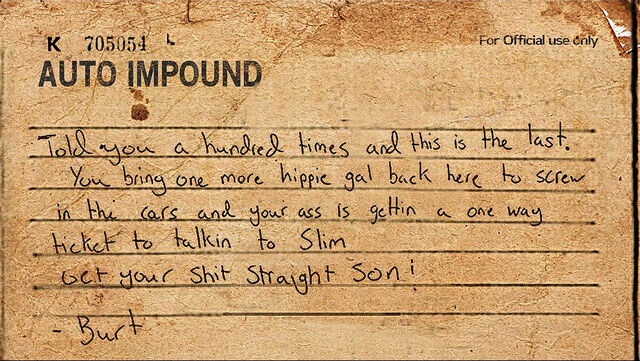 K 705054
For Official use only
AUTO IMPOUND
Told you a hundred times and this is the last.
You bring one more hippie gal back here to screw
in the cars and your ass is gettin a one way
ticket to talkin to Slim
Get your shit straight Son!
- Burt